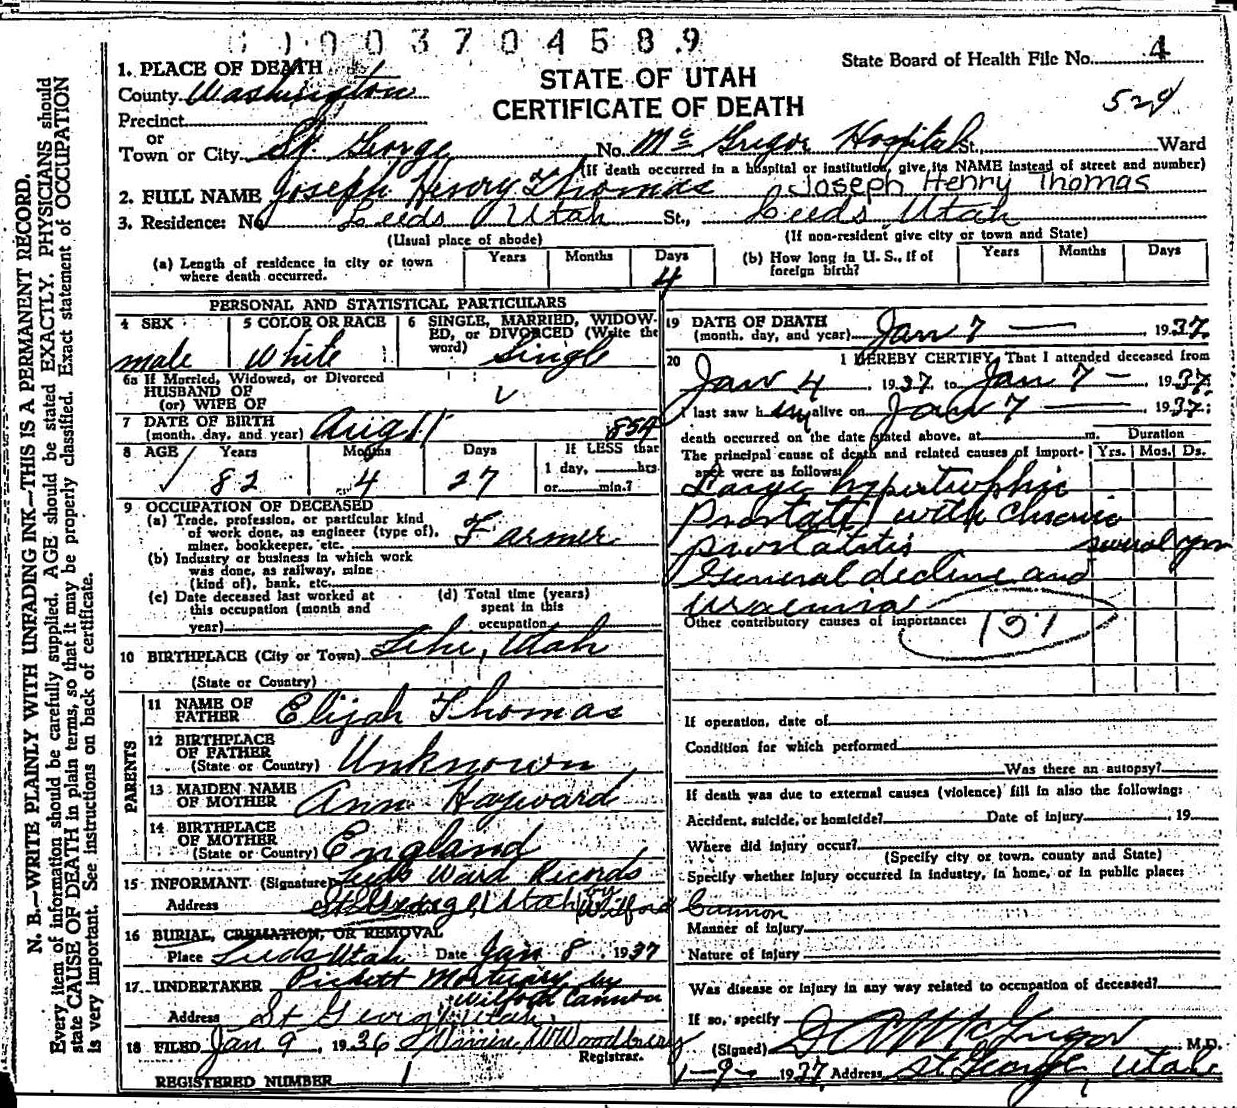 0 0 0 3 7 0 4 5 8 9
State Board of Health File No. 4
1. PLACE OF DEATH
STATE OF UTAH
CERTIFICATE OF DEATH
529
County Washington
Precinct
or
Town or City St George No. Mc Gregor Hospital St., Ward
(If death occurred in a hospital or institution, give its NAME instead of street and number)
2. FULL NAME Joseph Henry Thomas Joseph Henry Thomas
3. Residence: No Leeds Utah St., Leeds Utah
(Usual place of abode) (If non-resident give city or town and State)
(a) Length of residence in city or town where death occurred. Years Months Days 4
(b) How long in U. S., if of foreign birth? Years Months Days
PERSONAL AND STATISTICAL PARTICULARS
4 SEX male
5 COLOR OR RACE White
6 SINGLE, MARRIED, WIDOWED, or DIVORCED (Write the word) Single
6a If Married, Widowed, or Divorced
HUSBAND OF
(or) WIFE OF
7 DATE OF BIRTH
(month, day, and year) Aug 11 854
8 AGE Years 82 Months 4 Days 27 If LESS than 1 day, hrs. or min.?
9 OCCUPATION OF DECEASED
(a) Trade, profession, or particular kind of work done, as engineer (type of), miner, bookkeeper, etc. Farmer
(b) Industry or business in which work was done, as railway, mine (kind of), bank, etc.
(c) Date deceased last worked at this occupation (month and year)
(d) Total time (years) spent in this occupation
10 BIRTHPLACE (City or Town) Lehi, Utah
(State or Country)
PARENTS
11 NAME OF FATHER Elijah Thomas
12 BIRTHPLACE OF FATHER
(State or Country) Unknown
13 MAIDEN NAME OF MOTHER Ann Hayward
14 BIRTHPLACE OF MOTHER
(State or Country) England
15 INFORMANT (Signature) Leeds Ward Records
Address St George, Utah by Wilford Cannon
16 BURIAL, CREMATION, OR REMOVAL
Place Leeds Utah Date Jan 8 1937
17 UNDERTAKER Pickett Mortuary by
Wilford Cannon
Address St George, Utah
18 FILED Jan 9, 1936 W Woodbury
Registrar.
REGISTERED NUMBER 1
19 DATE OF DEATH
(month, day, and year) Jan 7 — 1937
20 I HEREBY CERTIFY, That I attended deceased from
Jan 4 1937, to Jan 7 — 1937
I last saw him alive on Jan 7 — 1937;
death occurred on the date stated above, at m. Duration
The principal cause of death and related causes of importance were as follows: Yrs. Mos. Ds.
Large hypertrophic
prostate with chronic
prostatitis several yrs
General decline and
uraemia
Other contributory causes of importance: 137
If operation, date of
Condition for which performed
Was there an autopsy?
If death was due to external causes (violence) fill in also the following:
Accident, suicide, or homicide? Date of injury , 19
Where did injury occur?
(Specify city or town, county and State)
Specify whether injury occurred in industry, in home, or in public place:
Manner of injury
Nature of injury
Was disease or injury in any way related to occupation of deceased?
If so, specify
(Signed) D A McGregor M.D.
1-9- 1937, Address St George, Utah
N. B.—WRITE PLAINLY WITH UNFADING INK—THIS IS A PERMANENT RECORD.
Every item of information should be carefully supplied. AGE should be stated EXACTLY. PHYSICIANS should
state CAUSE OF DEATH in plain terms, so that it may be properly classified. Exact statement of OCCUPATION
is very important. See instructions on back of certificate.